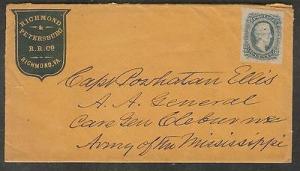 RICHMOND
&
PETERSBURG
R.R.Co
RICHMOND, VA.
Capt Powhatan Ellis
A. A. General
Care Gen Cleburne
Army of the Mississippi